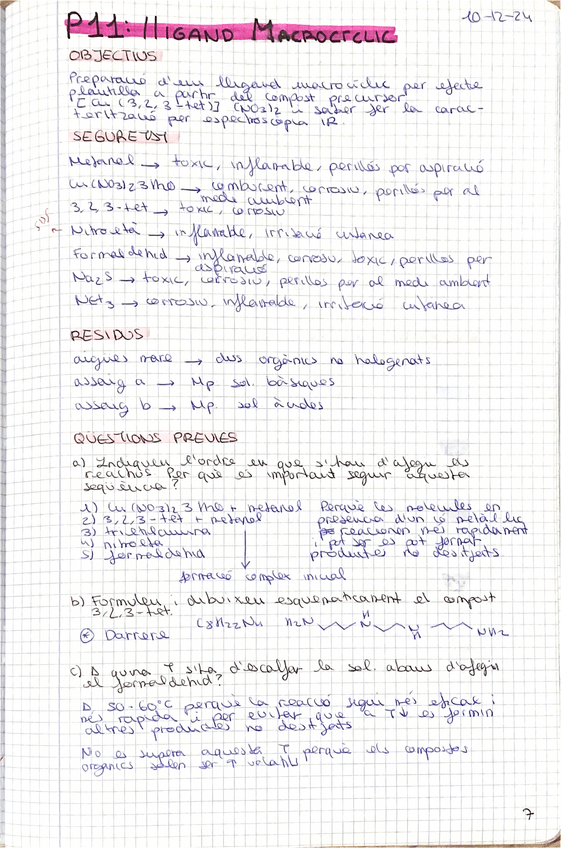 P11: Lligand Macrocíclic
10-12-24
OBJECTIUS
Preparació d'un lligand macrocíclic per efecte
plantilla a partir del compost precursor
[Cu (3,2,3-tet)] (NO3)2 i saber fer la carac-
terització per espectroscopia IR.
SEGURETAT
Metanol → toxic, inflamable, perillós por aspiració
Cu(NO3)2 3H2O → comburent, corrosiu, perillós per al
medi ambient
3,2,3-tet → toxic, corrosiu
Nitroetà → inflamable, irritació cutanea
Formaldehid → inflamable, corrosiu, toxic, perillós per
aspiració
Na2S → toxic, corrosiu, perillós per al medi ambient
NEt3 → corrosiu, inflamable, irritació cutanea
RESIDUS
aigues mare → dis orgànics no halogenats
assaig a → Mp. sol. bàsiques
assaig b → Mp. sol àcides
QÜESTIONS PREVIES
a) Indiqueu l'ordre en que s'han d'afegir els
reactius. Per què és important seguir aquesta
seqüència?
1) Cu(NO3)2 3H2O + metanol
2) 3,2,3-tet + metanol
3) trietilamina
4) nitroetà
5) formaldehid
Perquè les molecules en
presencia d'un ió metàl·lic
reaccionen més rapidament
i pot ser es pot formar
productes no desitjats
formació complex inicial
b) Formuleu i dibuixeu esquematicament el compost
3,2,3-tet.
* Darrere
C8H22N4
H2N
H
N
N
H
NH2
c) A quina T s'ha d'escalfar la sol. abans d'afegir
el formaldehid?
A 50-60°C perquè la reacció sigui més eficaç i
més rapida i per evitar que a T↓ es formin
altres productes no desitjats
No es supera aquesta T perquè els compostos
organics solen ser ↑ volatils
7